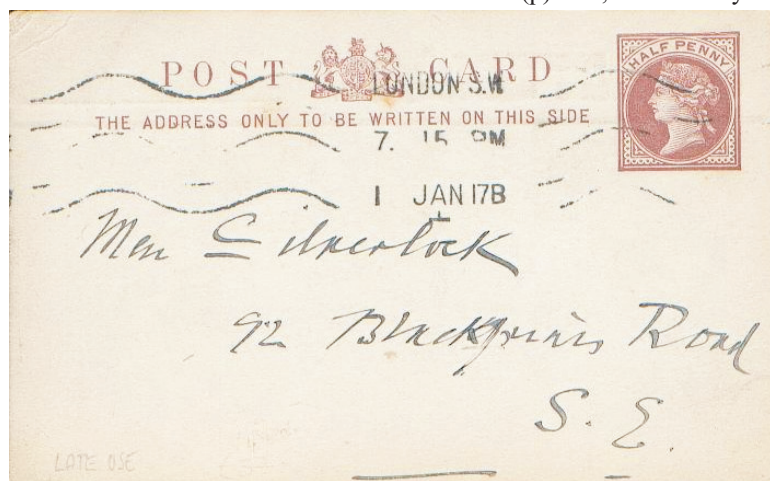 HALF PENNY
POST CARD
LONDON S.W
THE ADDRESS ONLY TO BE WRITTEN ON THIS SIDE
7. 15 PM
1 JAN 17B
Silverlock
92 Blackfriars Road
S.E.
LATE USE